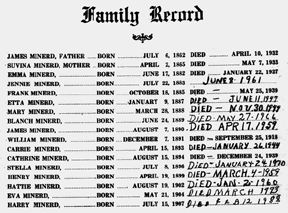 Family Record
JAMES MINERD, FATHER - BORN JULY 6, 1862 DIED APRIL 10, 1932
SUVINA MINERD, MOTHER - BORN APRIL 2, 1865 DIED MAY 7, 1933
EMMA MINERD, BORN JUNE 17, 1882 DIED JANUARY 22, 1937
JENNIE MINERD, BORN MAY 2, 1883 JUNE 8 1961
FRANK MINERD, BORN OCTOBER 18, 1885 DIED — MAY 25, 1939
ETTA MINERD, BORN JANUARY 9, 1887 DIED — JUNE 11,
MARY MINERD, BORN MARCH 28, 1888 DIED — NOV.30,
BLANCH MINERD, BORN JUNE 24, 1889 DIED-MAY 27-1966
JAMES MINERD, BORN AUGUST 7, DIED APRIL 17, 1959
WILLIAM MINERD, BORN DECEMBER 7, 1891 DIED — SEPTEMBER 25, 1918
CARRIE MINERD, BORN APRIL 15, 1893 DIED-JANUARY 26,
CATHRINE MINERD, BORN AUGUST 15, DIED — DECEMBER 24, 1939
STELLA MINERD, BORN JULY 8, 1896 DIED-JANUARY 24,1970
HENRY MINERD, BORN APRIL 19, 1899 DIED-MARCH,4-1959
HATTIE MINERD, BORN AUGUST 19, DIED-JAN- 1960
EVA MINERD, BORN MAY 21, 1904 DIED MARCH
HARRY MINERD, BORN JULY 15, 1907 DIED